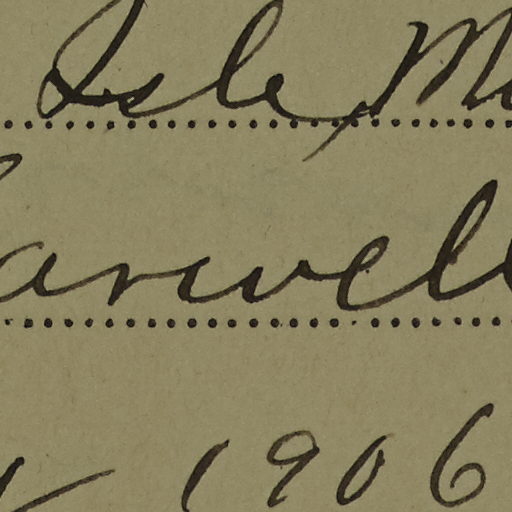 Isle M
arwell
1906